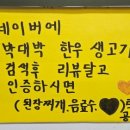 네이버에
박대박 한우 생고기
검색후 리뷰달고
인증하시면
(된장찌개, 음료수